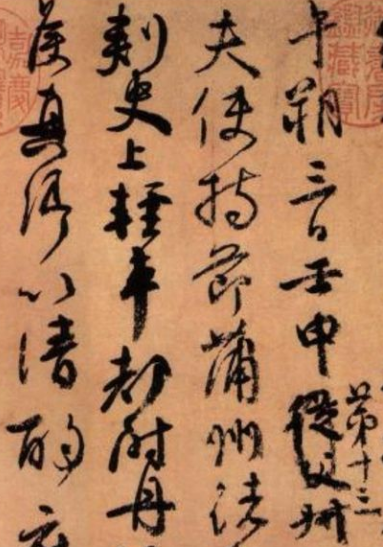 午朔三日壬申從父叔
第十三
夫使持節蒲州諸
刺史上輕車都尉丹
侯真卿以清酌庶
嘉慶